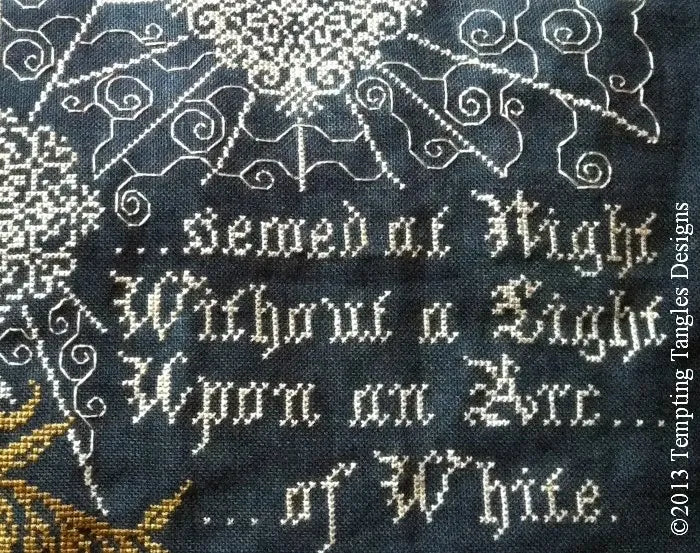 ...siemed at Night
Without a Light
Upon an Arc...
...of White.
©2013 Tempting Tangles Designs